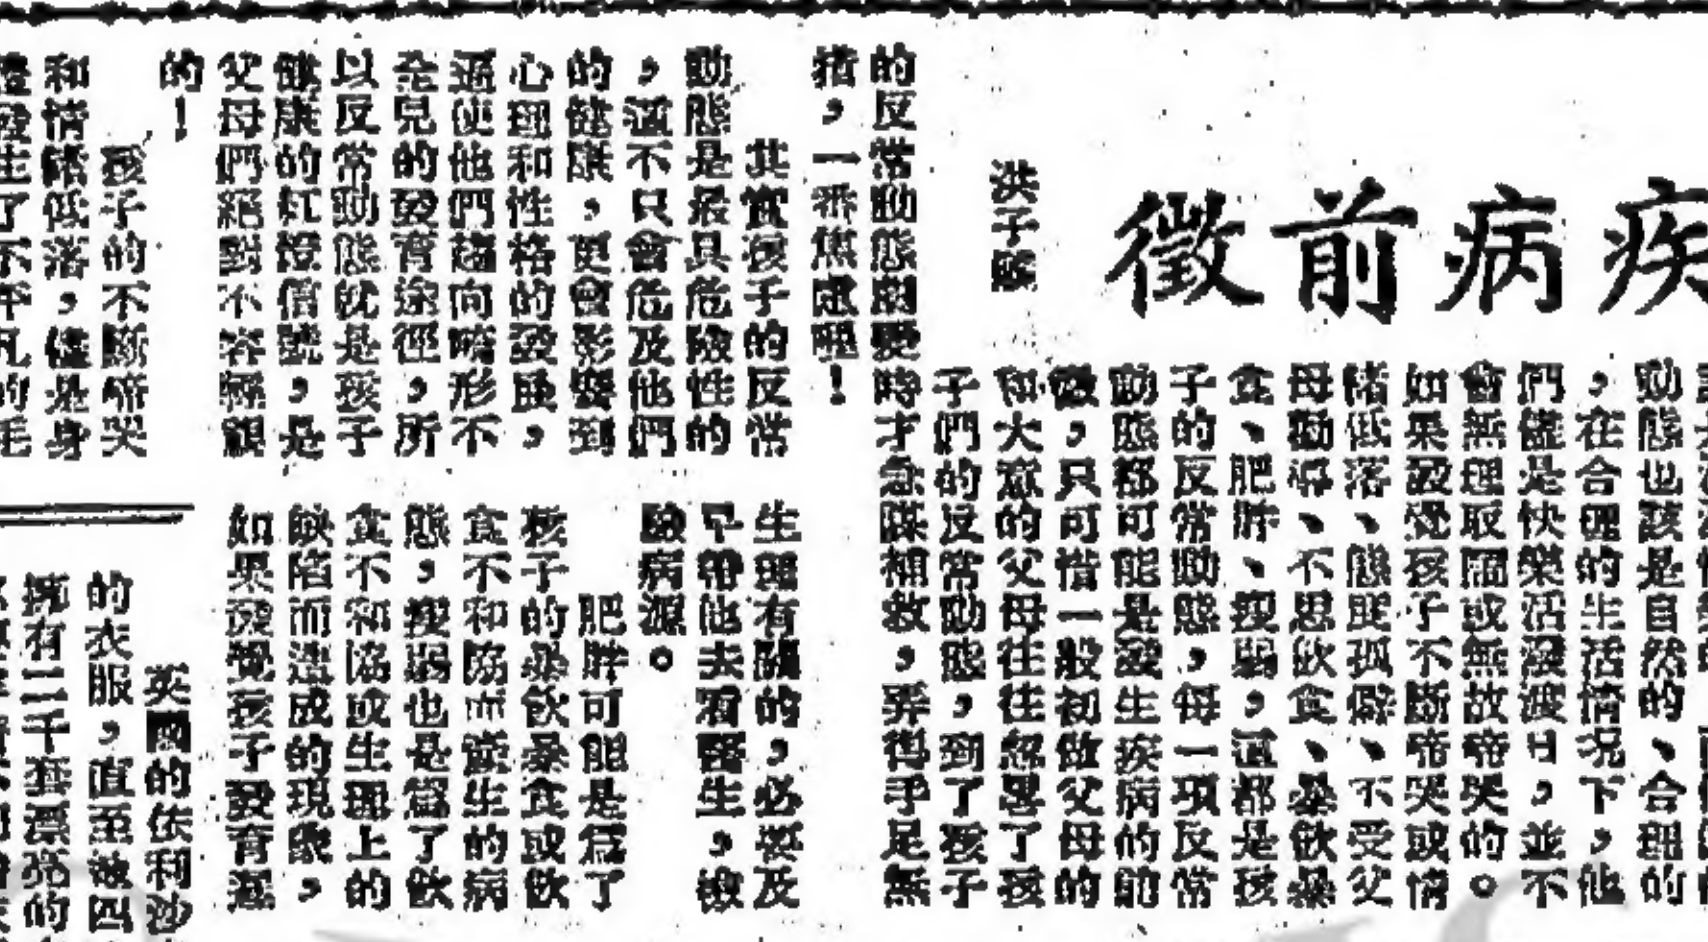 疾病前徵
洪子
動態也該是自然的、合理的
，在合理的生活情況下，他
們儘是快樂活潑渡日，並不
會無理取鬧或無故啼哭的。
如果發覺孩子不斷啼哭或情
緒低落、態度孤僻、不受父
母勸導、不思飲食、暴飲暴
食、肥胖、瘦弱，這都是孩
子的反常動態，每一項反常
動態都可能是發生疾病的前
徵，只可惜一般初做父母的
和大意的父母往往忽畧了孩
子們的反常動態，到了孩子
的反常動態劇變時才急謀補救，弄得手足無
措，一番焦慮哩！
其實孩子的反常
動態是最具危險性的
，這不只會危及他們
的健康，更會影響到
心理和性格的發展，
逼使他們趨向畸形不
全兒的發育途徑，所
以反常動態就是孩子
健康的紅燈信號，是
父母們絕對不容輕視
的！
孩子的不斷啼哭
和情緒低落，儘是身
發生了不平凡的毛
生理有關的，必要及
早帶他去看醫生，檢
驗病源。
肥胖可能是為了
孩子的暴飲暴食或飲
食不和協而產生的病
態，瘦弱也是為了飲
食不和協或生理上的
缺陷而造成的現象，
如果發覺孩子發育遲
英國的依利沙
的衣服，直至被四
擁有二千套漂亮的